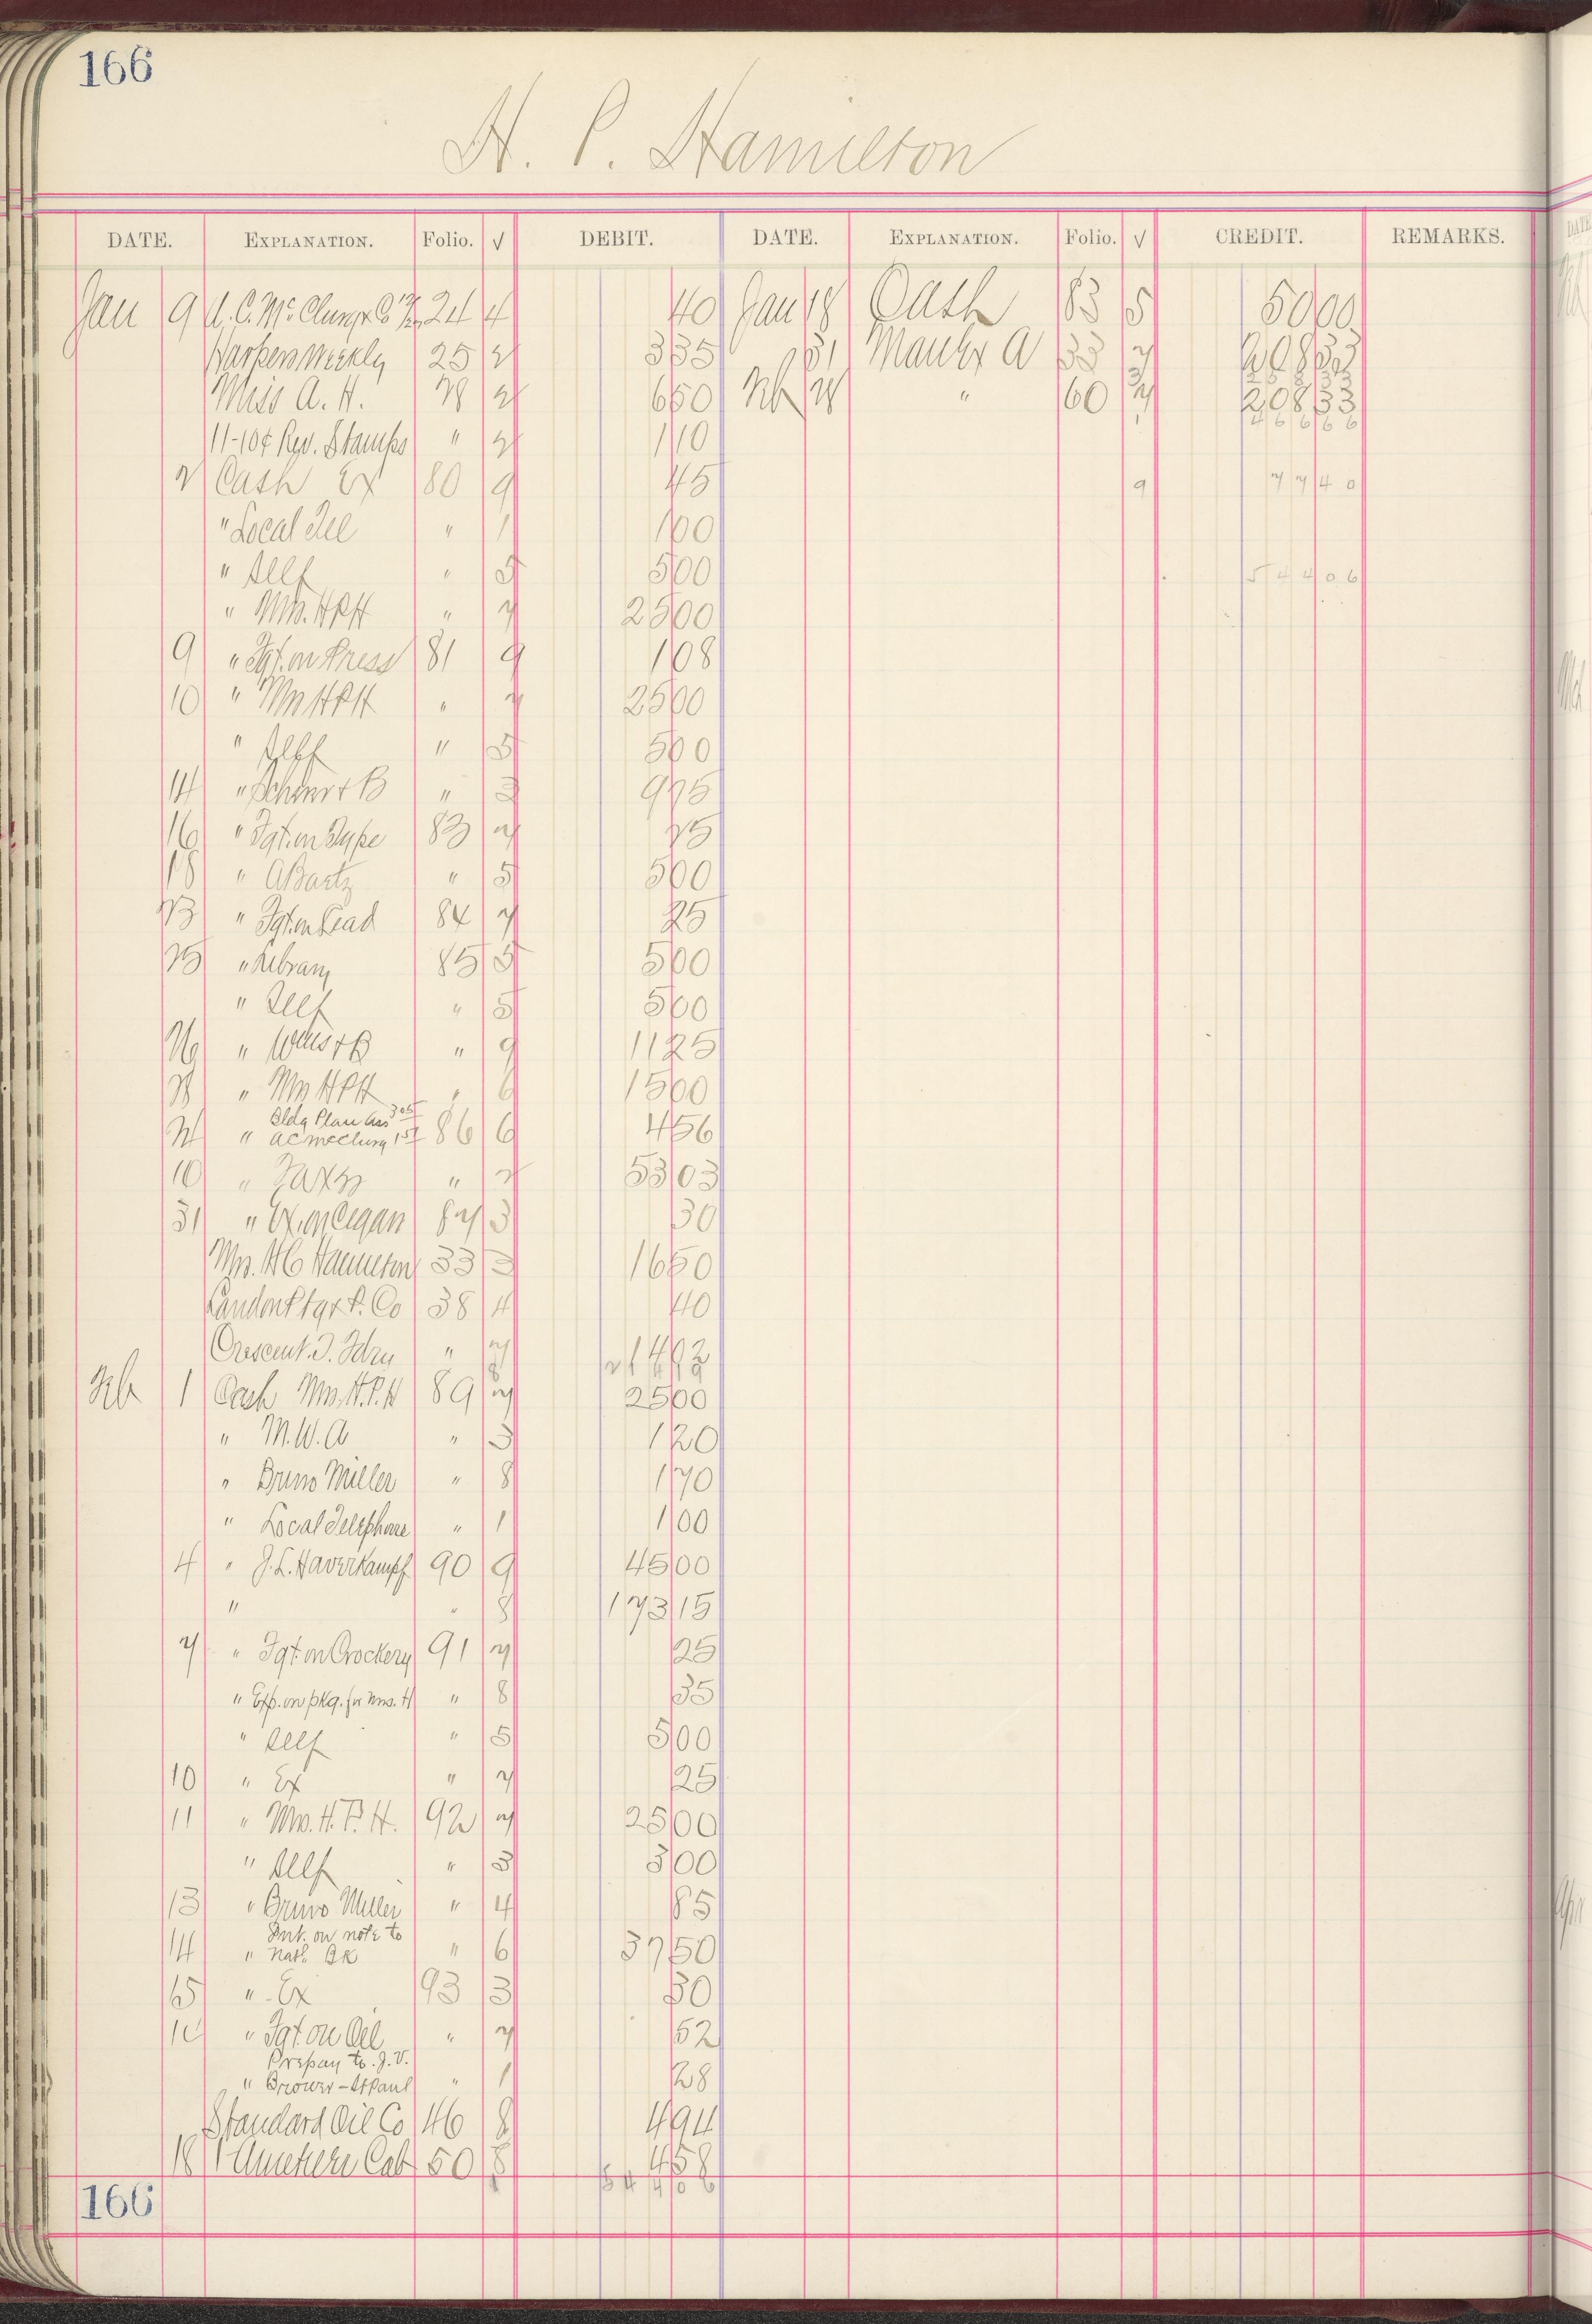 166
H. P. Hamilton
DATE. EXPLANATION. Folio. √ DEBIT. DATE. EXPLANATION. Folio. √ CREDIT. REMARKS.
Jan 9 A. C. McClurg & Co 24 4 40 Jan 18 Cash 83 5 50 00
Harpers Weekly 25 2 3 35 31 Manfg A 33 7 208 33
Miss A. H. 28 2 6 50 Feb 28 " 60 7 208 33
466 66
11-10¢ Rev. Stamps " 2 1 10
2 Cash Ex 80 9 45 9 77 40
" Local Tel " 1 1 00
" Self " 5 5 00 544 06
" Mrs. HPH " 7 25 00
9 " Fgt. on Press 81 9 1 08
10 " Mrs HPH " 7 25 00
" Self " 5 5 00
14 " B " 3 9 75
16 " Fgt. on Type 83 7 25
18 " A Bartz " 5 5 00
23 " Fgt. on Lead 84 7 25
25 " Library 85 5 5 00
" Self " 5 5 00
26 " B " 9 11 25
28 " Mrs HPH " 6 15 00
Bldg Plan Ass 305
" AC McClurg 151 86 6 4 56
10 " Taxes " 2 53 03
31 " Ex. on Cigars 87 3 30
Mrs. HC Hamilton 33 3 16 50
Landon P & P. Co 38 4 40
Crescent T. Fdry " 7
Feb 1 Cash Mrs. H.P.H 89 7 25 00
" M.W.A " 3 1 20
" Bruno Miller " 8 1 70
" Local Telephone " 1 1 00
4 " J. L. Haverkampf 90 9 45 00
" " 8 173 15
7 " Fgt. on Crockery 91 7 25
" Exp. on pkg. for Mrs. H " 8 35
" Self " 5 5 00
10 " Ex " 7 25
11 " Mrs. H. P. H. 92 7 25 00
" Self " 5 5 00
13 " Bruno Miller " 4 85
Int. on note to
14 " Natl. Bk " 6 37 50
15 " Ex 93 3 30
16 " Fgt on Oil " 7 52
Prepay to. J. V.
" Brower - St Paul " 1 28
Standard Oil Co 46 8 4 94
18 Cab 50 8 4 58
544 06
166